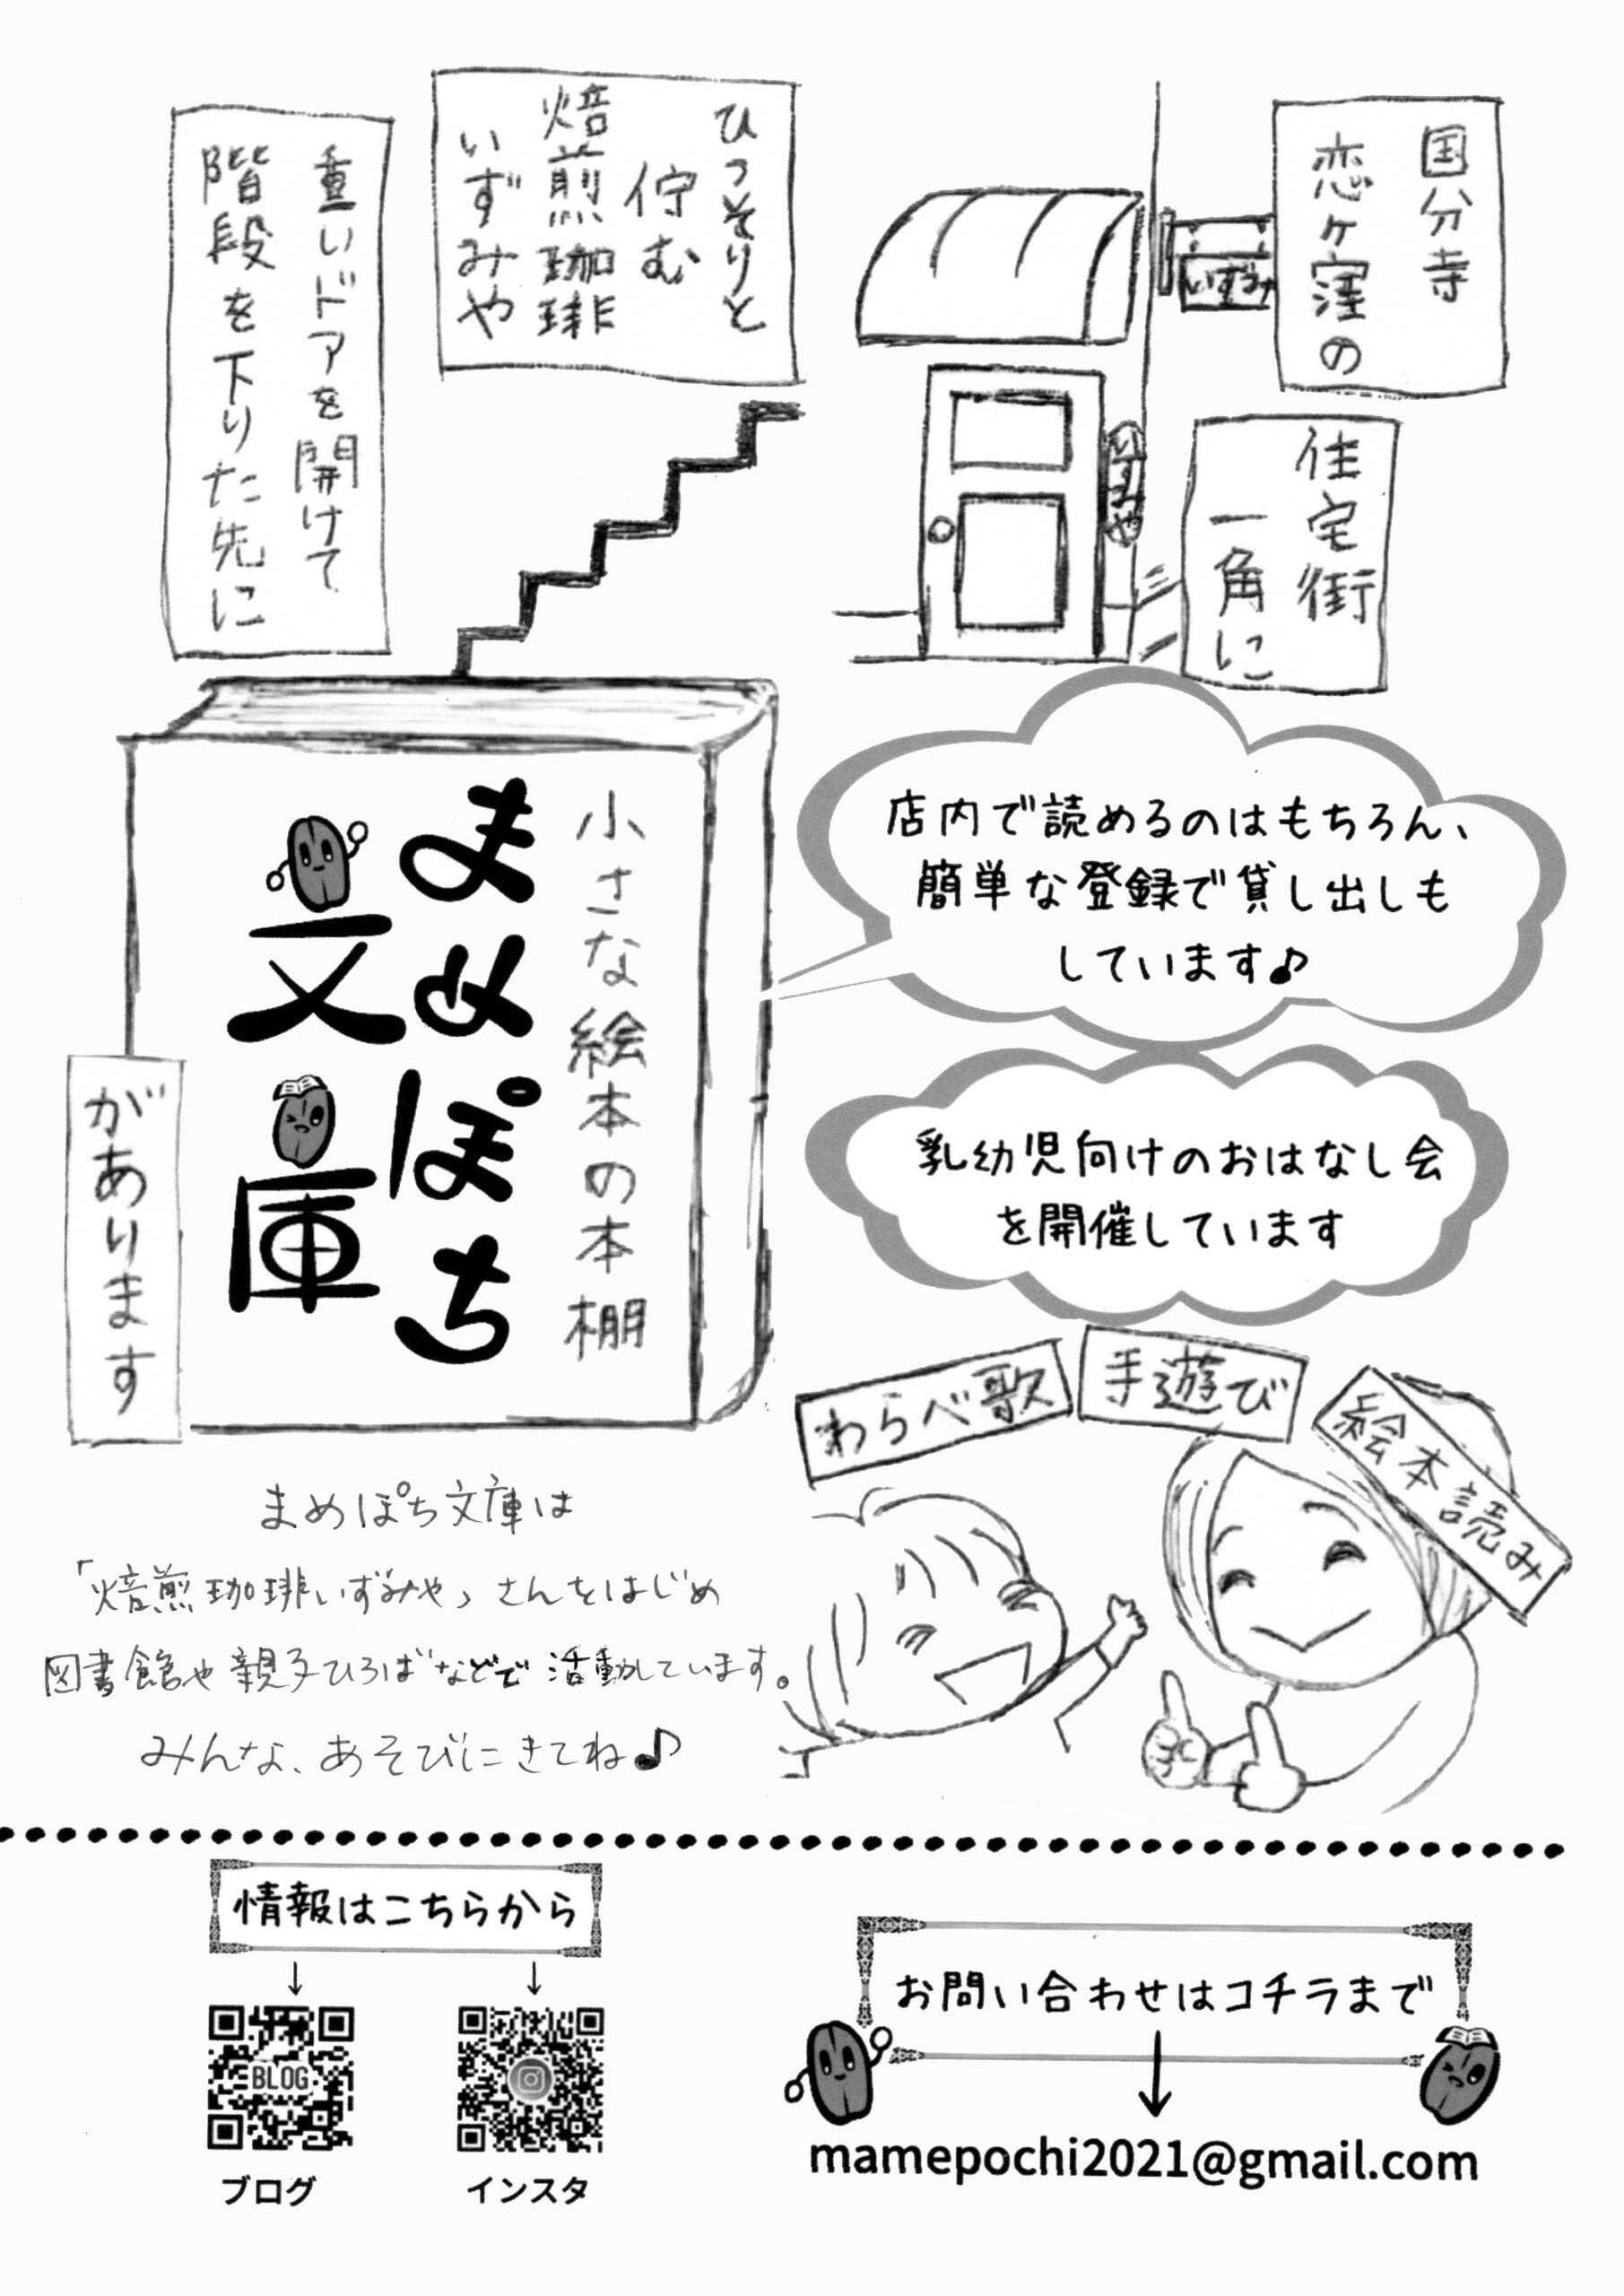 国分寺
恋ヶ窪の
いずみ
住宅街
一角に
いずみや
ひっそりと
佇む
焙煎珈琲
いずみや
重いドアを開けて
階段を下りた先に
小さな絵本の本棚
まめぽち
文庫
があります
店内で読めるのはもちろん、
簡単な登録で貸し出しも
しています♪
乳幼児向けのおはなし会
を開催しています
わらべ歌
手遊び
絵本読み
まめぽち文庫は
「焙煎珈琲いずみや」さんをはじめ
図書館や親子ひろばなどで活動しています。
みんな、あそびにきてね♪
情報はこちらから
↓ ↓
BLOG
ブログ
インスタ
お問い合わせはコチラまで
↓
mamepochi2021@gmail.com